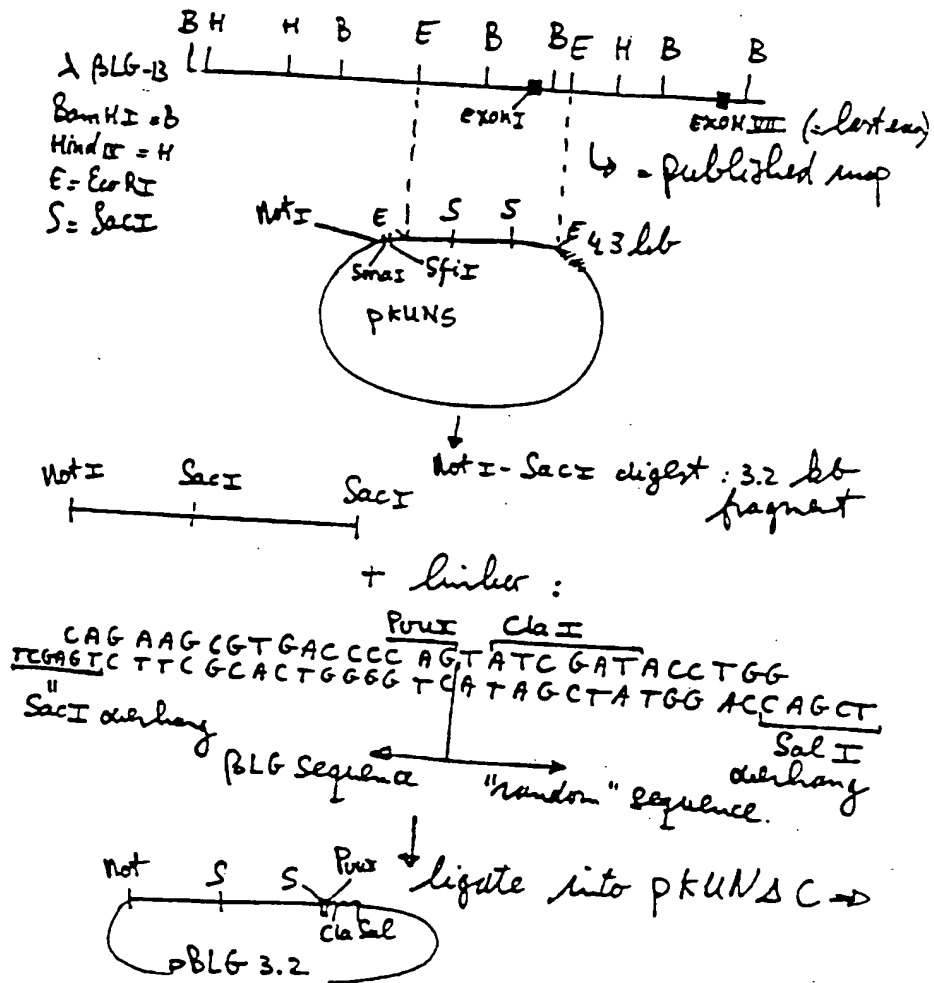 B H H B E B B E H B B
λ βLG-13
BamHI = B
Hind III = H
E = EcoRI
S = SacI
exon I
exon VII (= last exon)
↳ = published map
NotI
E S S E 4.3 kb
SmaI SfiI
pKUNS
NotI-SacI digest : 3.2 kb
fragment
NotI SacI SacI
+ linker :
PvuI ClaI
CAG AAG CGTGACCCC CAGTATCGATACCTGG
TCGAGTC TTCGCACTGGGG TCATAGCTATGG ACCAGCT
"
SacI overhang
Sal I
overhang
βLG sequence
"random" sequence.
Not S S PvuI
ligate into pKUNΔC ⇒
Cla Sal
pBLG 3.2